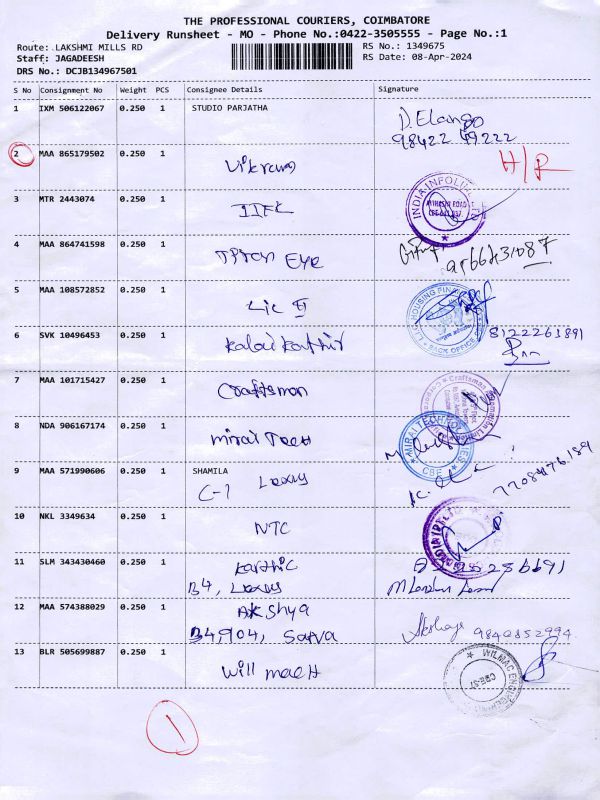 THE PROFESSIONAL COURIERS, COIMBATORE
Delivery Runsheet - MO - Phone No.:0422-3505555 - Page No.:1
Route: LAKSHMI MILLS RD RS No.: 1349675
Staff: JAGADEESH RS Date: 08-Apr-2024
DRS No.: DCJB134967501
S No Consignment No Weight PCS Consignee Details Signature
1 IXM 506122067 0.250 1 STUDIO PARJATHA D. Elango
98422 49222
2 MAA 865179502 0.250 1 Vikram H/R
3 MTR 2443074 0.250 1 IIFL INDIA INFOLINE
4 MAA 864741598 0.250 1 Eye
5 MAA 108572852 0.250 1 Lic II HOUSING FINANCE BACK OFFICE
6 SVK 10496453 0.250 1 Kalai Kathir 8122263891
7 MAA 101715427 0.250 1 Craftsman Craftsman Automation Limited
8 NDA 906167174 0.250 1 mirai Tech MIRAI TECHNOLOGIES CBE
9 MAA 571990606 0.250 1 SHAMILA
C-1 Luxus 7708476189
10 NKL 3349634 0.250 1 NTC
11 SLM 343430460 0.250 1 Karthic
B4, Luxus
12 MAA 574388029 0.250 1 Akshya
B4,904, Sarva Akshaya 9840852994
13 BLR 505699887 0.250 1 Will mach WILMAC ENGINEERING CBE-37
1